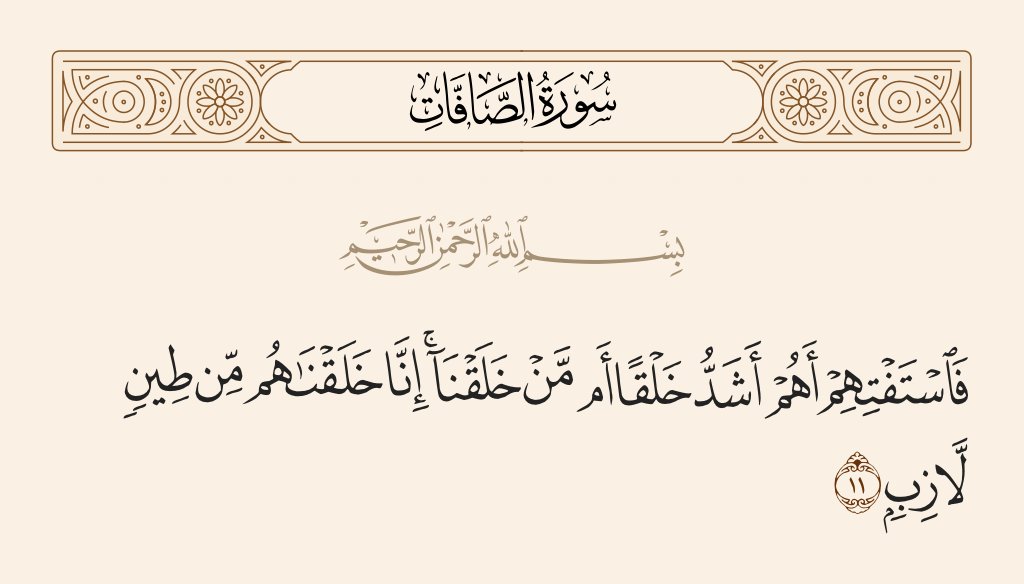 سُورَةُ الصَّافَّاتِ
بِسْمِ ٱللَّهِ ٱلرَّحْمَٰنِ ٱلرَّحِيمِ
فَٱسْتَفْتِهِمْ أَهُمْ أَشَدُّ خَلْقًا أَم مَّنْ خَلَقْنَآ ۚ إِنَّا خَلَقْنَٰهُم مِّن طِينٍ
لَّازِبٍۭ ١١